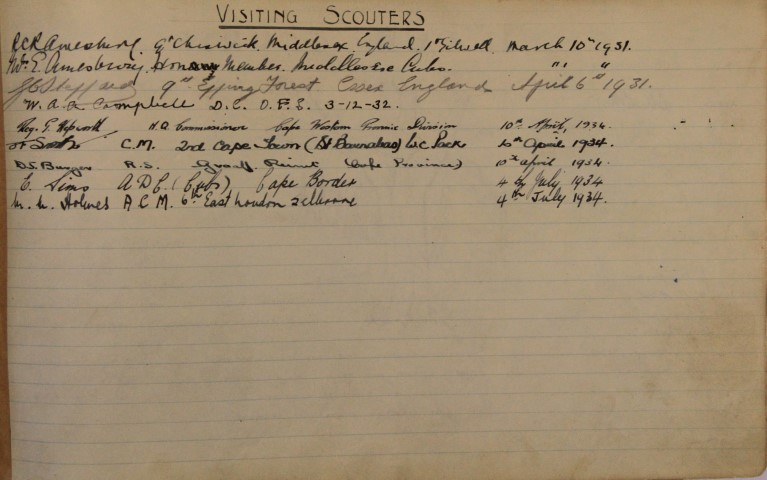 VISITING SCOUTERS
R.C.R. Amesbury, 9th Chiswick, Middlesex, England. 1st Gilwell March 10th 1931.
Wm. E. Amesbury, Honorary Member Middlesex Cubs. " " "
9th Epping Forest Essex England April 6th 1931.
W. A. Campbell D.C. O.F.S. 3-12-32.
Reg. G. Hepworth H.Q. Commissioner Cape Western Province Division 10th April, 1934.
C.M. 2nd Cape Town (St Barnabas) W.C. Pack 10th April 1934.
D.S. Burger R.S. Graaff. Reinet (Cape Province) 10th April 1934.
E. Sims A D C (Cubs), Cape Border 4th July 1934
M. M. Holmes A C M. 6th East London 4th July 1934.